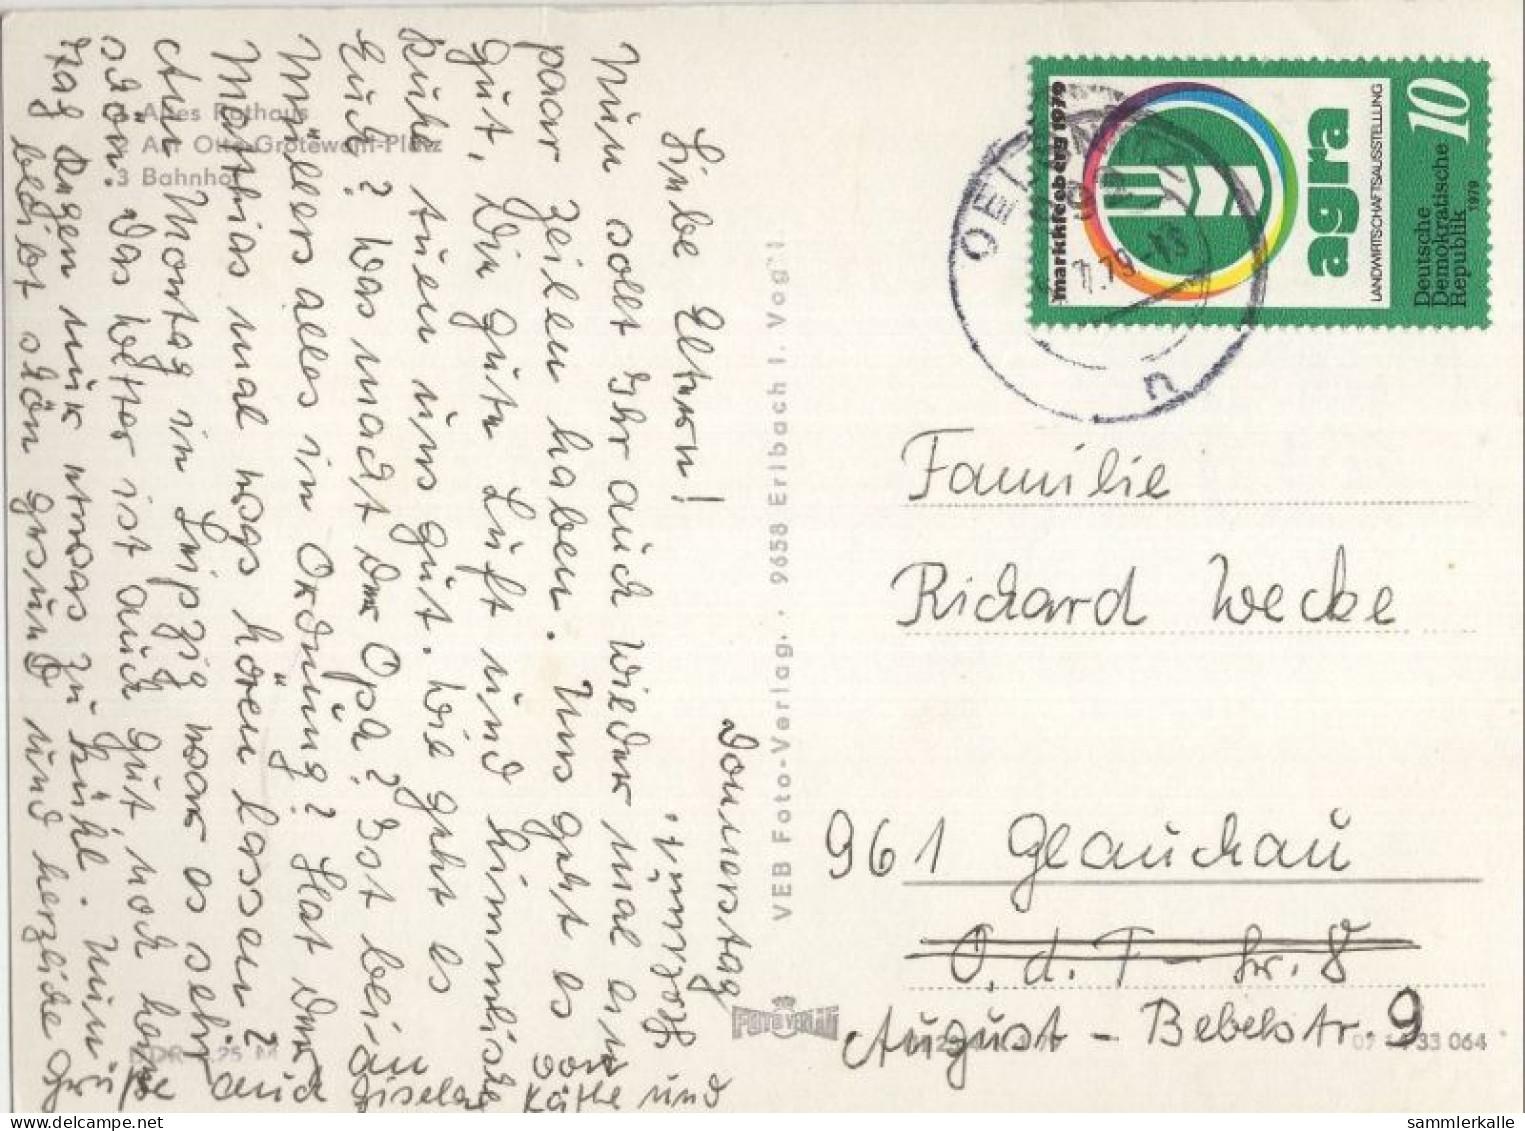 1 Altes Rathaus
2 Am Otto-Grotewohl-Platz
3 Bahnhof
Donnerstag
vormitt.
Liebe Eltern!
Nun sollt Ihr auch wieder mal ein
paar Zeilen haben. Uns geht es
gut, die gute Luft und himmlische
Ruhe tuen uns gut. Wie geht es
Euch? Was macht der Opa? Ist bei
Müllers alles in Ordnung? Hat der
Matthias mal was hören lassen?
Montag in Leipzig war es sehr
schön. Das Wetter ist auch gut noch
Tag Regen nur etwas zu kühl. Nun
bleibt schön gesund und herzliche
von Käthe und
Gisela
VEB Foto-Verlag · 9658 Erlbach i. Vogtl.
FOTO VERLAG
markkleeberg 1979
agra
LANDWIRTSCHAFTSAUSSTELLUNG
10
Deutsche
Demokratische
Republik
1979
Familie
Richard Wecke
961 Glauchau
O. d. F - Str. 8
August-Bebelstr. 9
33 064
sammlerkalle